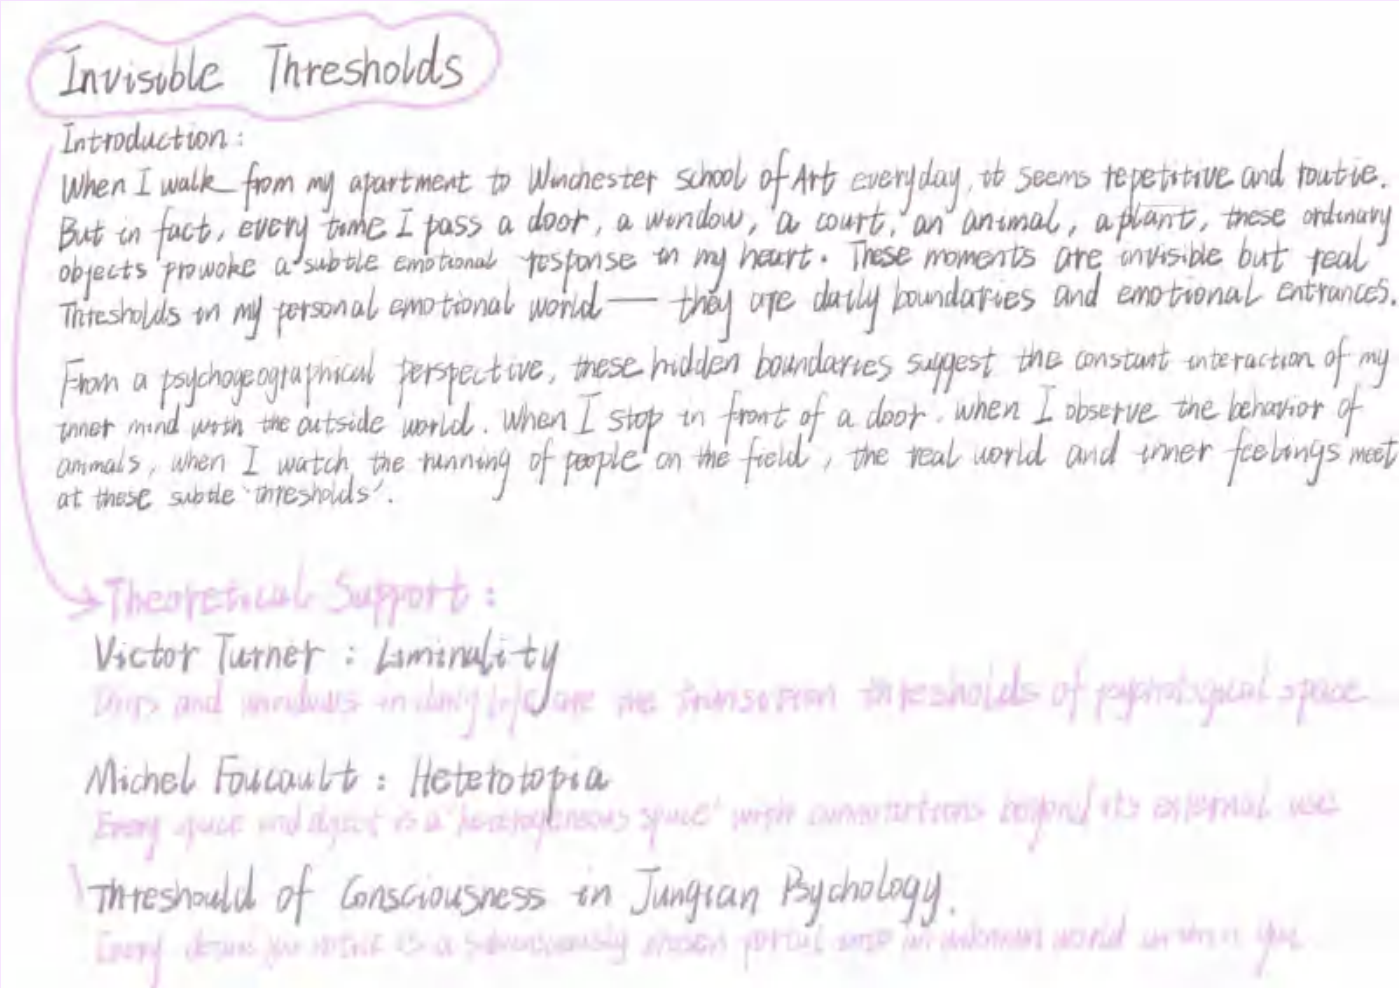 Invisible Thresholds
Introduction:
When I walk from my apartment to Winchester school of Art everyday, it seems repetitive and routie.
But in fact, every time I pass a door, a window, a court, an animal, a plant, these ordinary
objects provoke a subtle emotional response in my heart. These moments are invisible but real
Thresholds in my personal emotional world — they are daily boundaries and emotional entrances.
From a psychogeographical perspective, these hidden boundaries suggest the constant interaction of my
inner mind with the outside world. When I stop in front of a door. when I observe the behavior of
animals, when I watch the running of people on the field, the real world and inner feelings meet
at these subtle 'thresholds'.
Theoretical Support:
Victor Turner: Liminality
and windows in daily life are the transition thresholds of psychological space
Michel Foucault: Heterotopia
Every space and object is a 'heterogeneous space' with connotations beyond its external use
Threshould of Consciousness in Jungian Psychology.
Every detail you notice is a subconsciously chosen portal into an unknown world within you